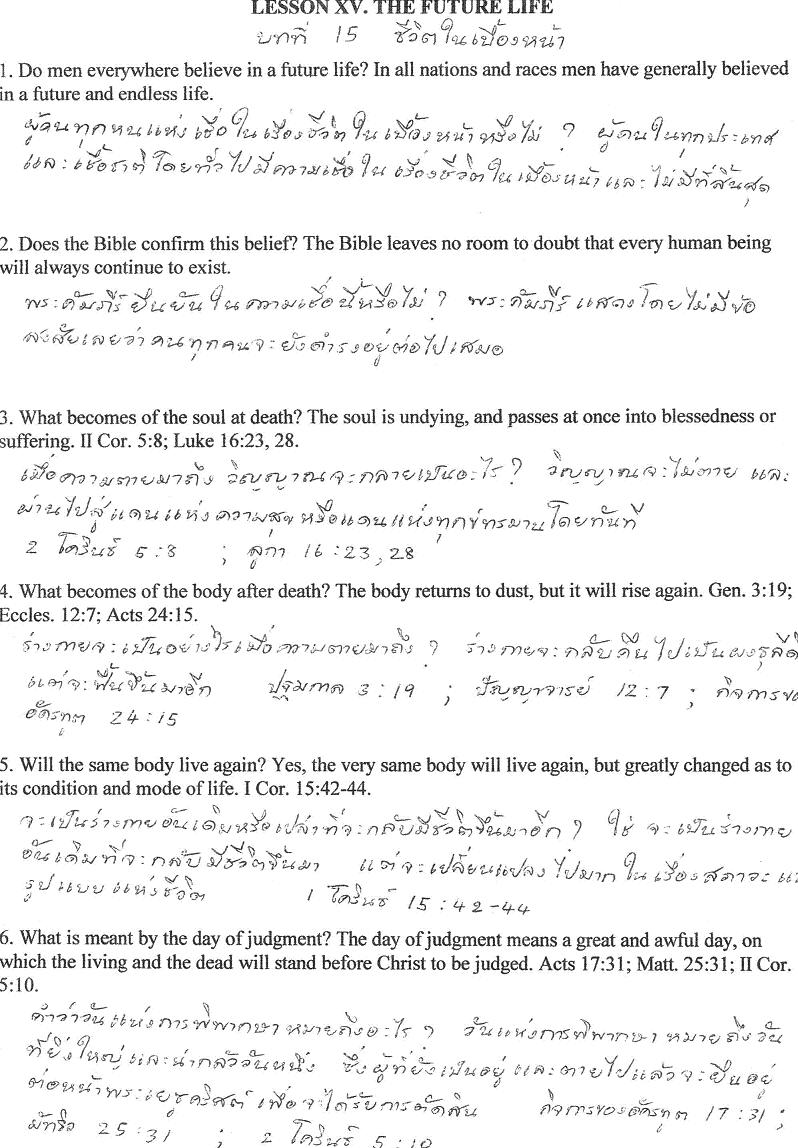 LESSON XV. THE FUTURE LIFE
บทที่ 15 ชีวิตในเบื้องหน้า
1. Do men everywhere believe in a future life? In all nations and races men have generally believed
in a future and endless life.
ผู้คนทุกหนแห่งเชื่อในเรื่องชีวิตในเบื้องหน้าหรือไม่ ? ผู้คนในทุกประเทศ
และเชื้อชาติโดยทั่วไปมีความเชื่อในเรื่องชีวิตในเบื้องหน้าและไม่มีที่สิ้นสุด
2. Does the Bible confirm this belief? The Bible leaves no room to doubt that every human being
will always continue to exist.
พระคัมภีร์ยืนยันในความเชื่อนี้หรือไม่ ? พระคัมภีร์แสดงโดยไม่มีข้อ
สงสัยเลยว่าคนทุกคนจะยังดำรงอยู่ต่อไปเสมอ
3. What becomes of the soul at death? The soul is undying, and passes at once into blessedness or
suffering. II Cor. 5:8; Luke 16:23, 28.
เมื่อความตายมาถึง วิญญาณจะกลายเป็นอะไร ? วิญญาณจะไม่ตาย และ
ผ่านไปสู่แดนแห่งความสุข หรือแดนแห่งทุกข์ทรมานโดยทันที
2 โครินธ์ 5:8 ; ลูกา 16:23, 28
4. What becomes of the body after death? The body returns to dust, but it will rise again. Gen. 3:19;
Eccles. 12:7; Acts 24:15.
ร่างกายจะเป็นอย่างไรเมื่อความตายมาถึง ? ร่างกายจะกลับคืนไปเป็นผงธุลีดิ
แต่จะฟื้นขึ้นมาอีก ปฐมกาล 3:19 ; ปัญญาจารย์ 12:7 ; กิจการขอ
อัครทูต 24:15
5. Will the same body live again? Yes, the very same body will live again, but greatly changed as to
its condition and mode of life. I Cor. 15:42-44.
จะเป็นร่างกายอันเดิมหรือเปล่าที่จะกลับมีชีวิตขึ้นมาอีก ? ใช่ จะเป็นร่างกาย
อันเดิมที่จะกลับมีชีวิตขึ้นมา แต่จะเปลี่ยนแปลงไปมากในเรื่องสภาวะ แ
รูปแบบแห่งชีวิต 1 โครินธ์ 15:42-44
6. What is meant by the day of judgment? The day of judgment means a great and awful day, on
which the living and the dead will stand before Christ to be judged. Acts 17:31; Matt. 25:31; II Cor.
5:10.
คำว่าวันแห่งการพิพากษา หมายถึงอะไร ? วันแห่งการพิพากษา หมายถึงวัน
ที่ยิ่งใหญ่และน่ากลัววันหนึ่ง ซึ่งผู้ที่ยังเป็นอยู่ และตายไปแล้วจะยืนอยู่
ต่อหน้าพระเยซูคริสต์ เพื่อจะได้รับการตัดสิน กิจการของอัครทูต 17:31 ;
มัทธิว 25:31 ; 2 โครินธ์ 5:10